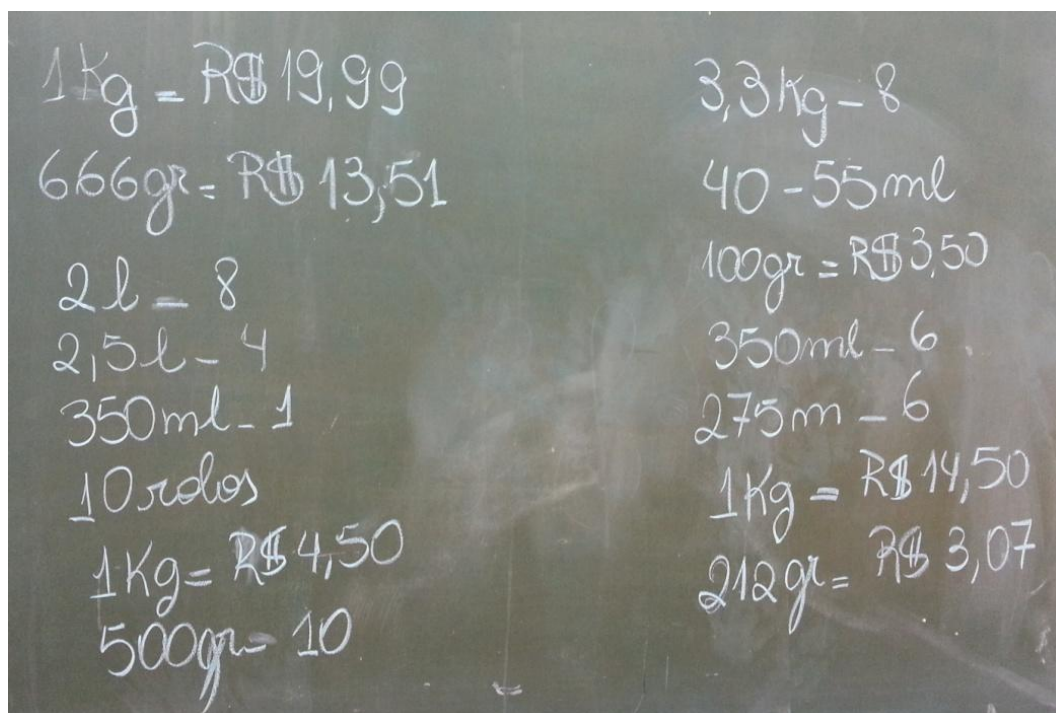 1Kg = R$ 19,99
666gr = R$ 13,51
2l - 8
2,5l - 4
350ml - 1
10 rolos
1Kg = R$ 4,50
500gr - 10
3,3Kg - 8
40 - 55ml
100gr = R$ 3,50
350ml - 6
275m - 6
1Kg = R$ 14,50
212gr = R$ 3,07